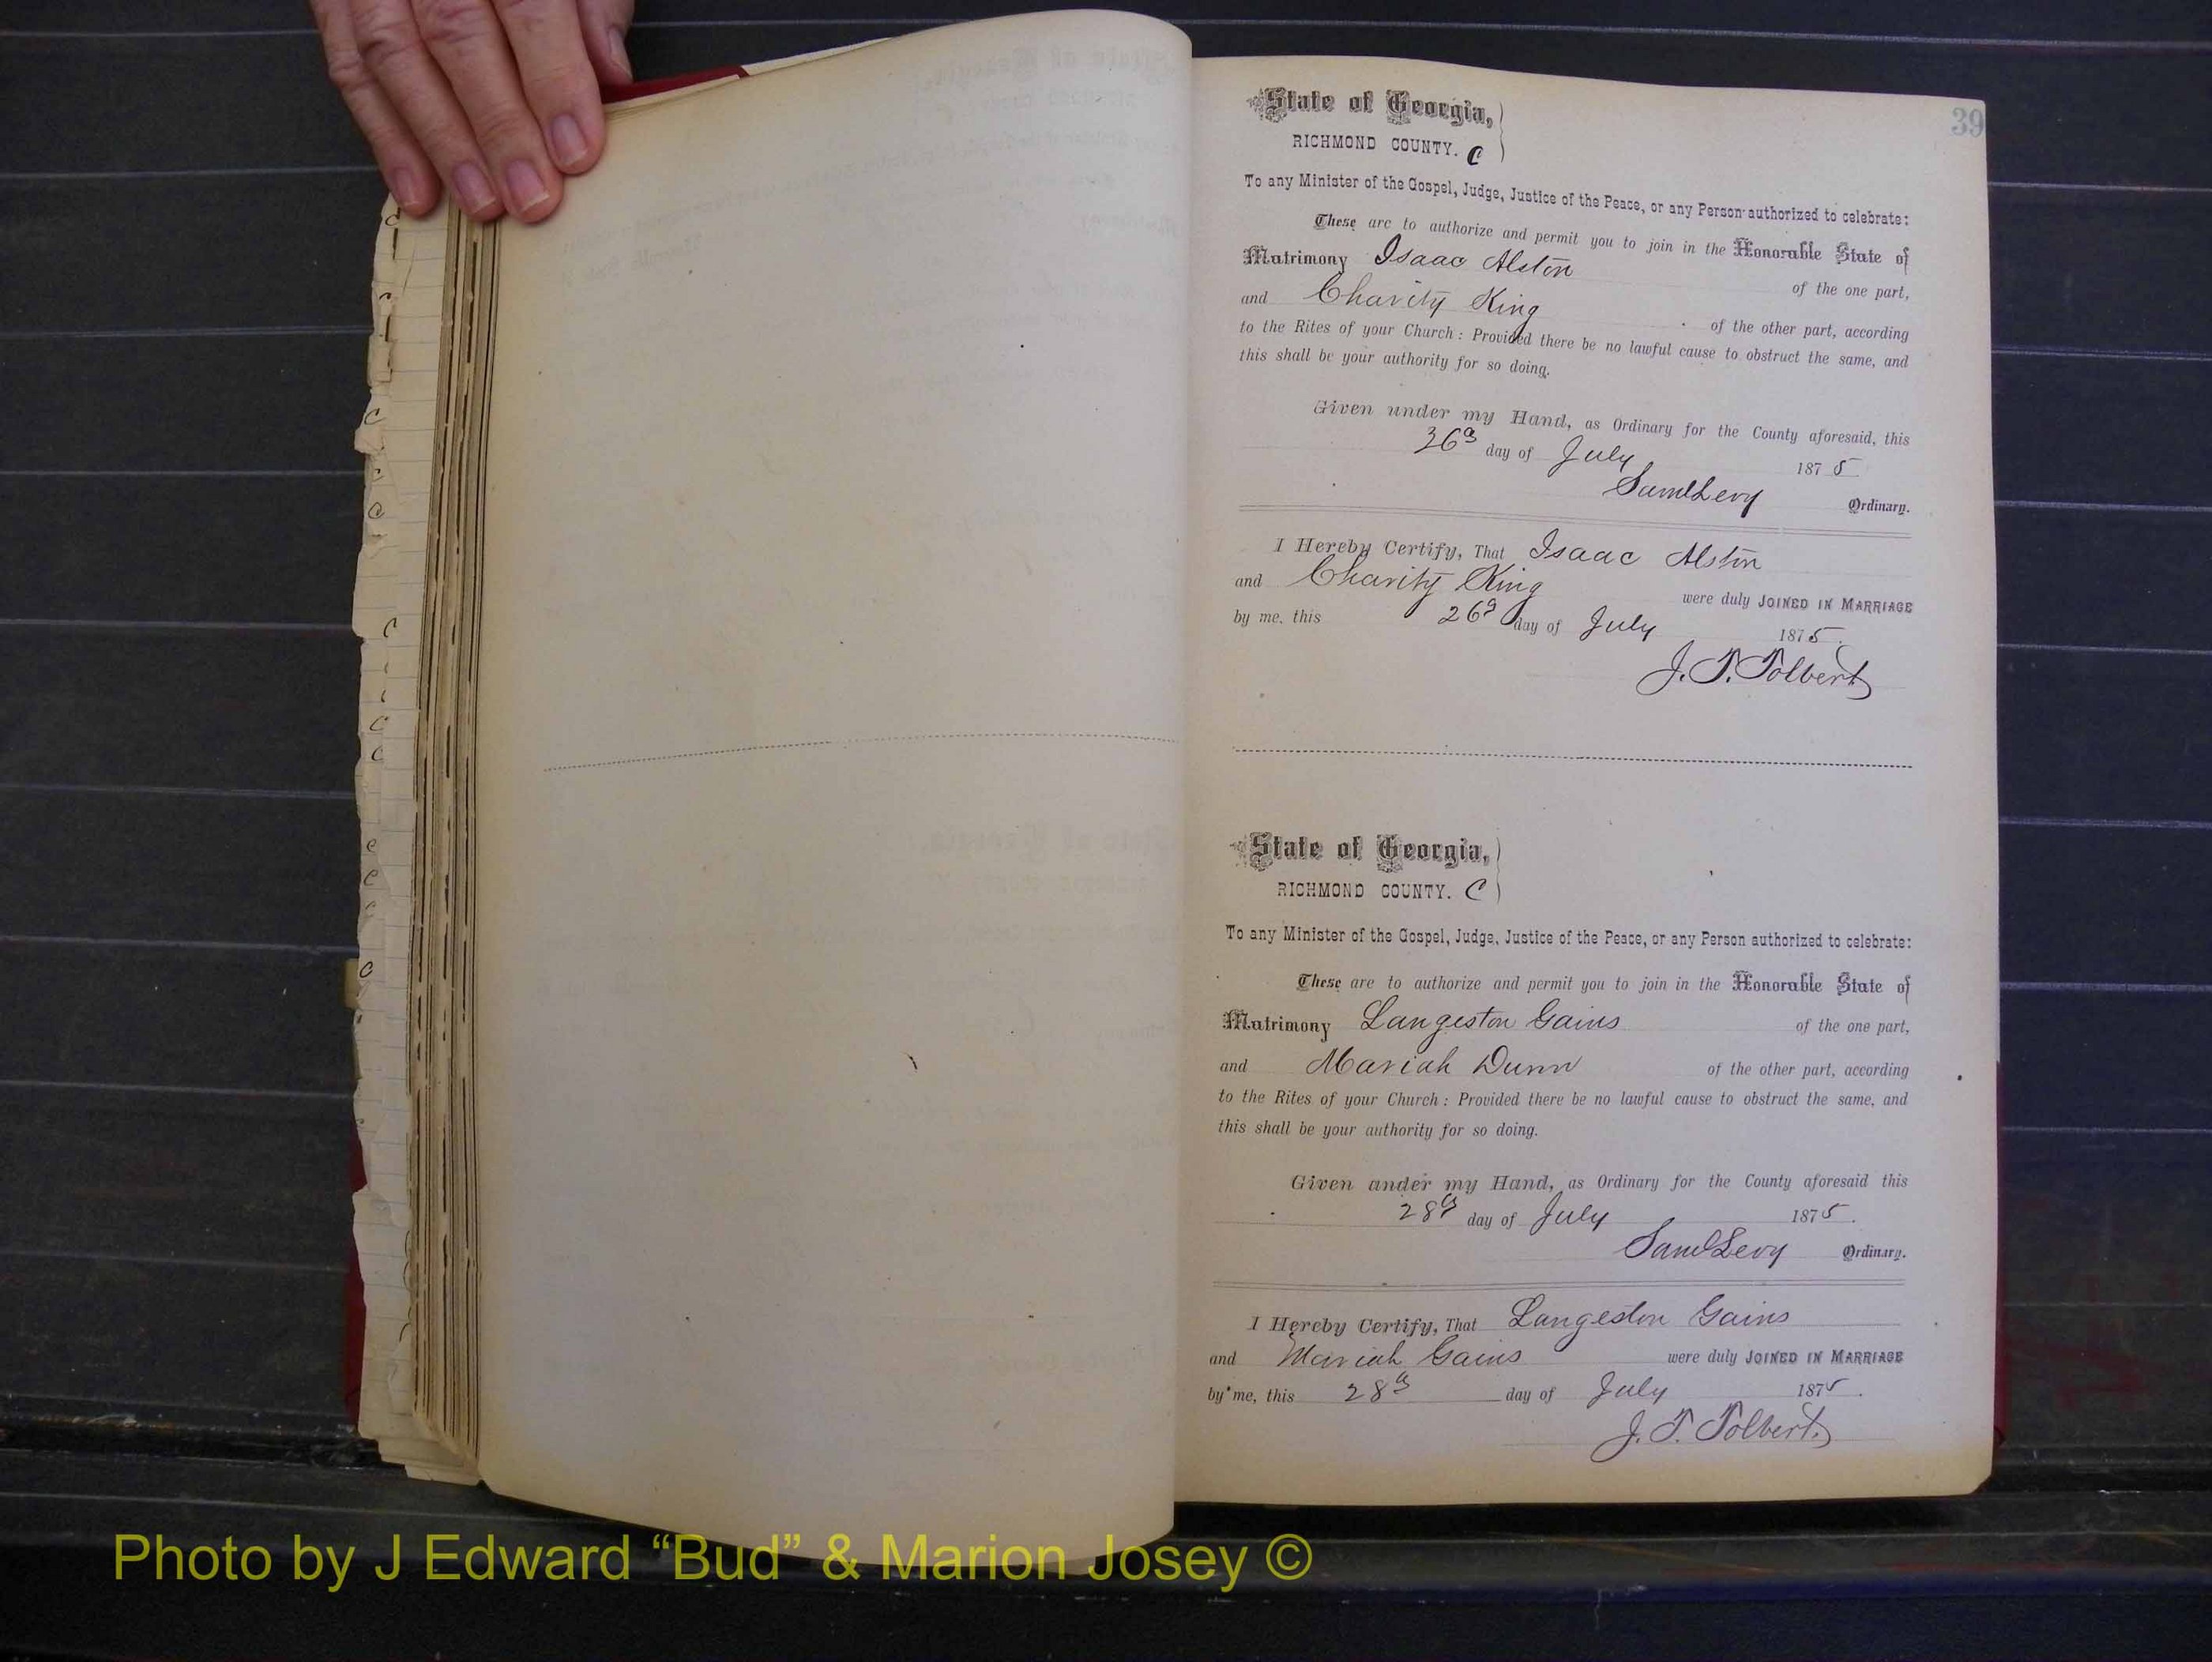 39
State of Georgia,
RICHMOND COUNTY. C
To any Minister of the Gospel, Judge, Justice of the Peace, or any Person authorized to celebrate:
These are to authorize and permit you to join in the Honorable State of
Matrimony Isaac Alston of the one part,
and Charity King of the other part, according
to the Rites of your Church: Provided there be no lawful cause to obstruct the same, and
this shall be your authority for so doing.
Given under my Hand, as Ordinary for the County aforesaid, this
26th day of July 1875
Saml Levy Ordinary.
I Hereby Certify, That Isaac Alston
and Charity King were duly JOINED IN MARRIAGE
by me, this 26th day of July 1875.
J. T. Tolbert
State of Georgia,
RICHMOND COUNTY. C
To any Minister of the Gospel, Judge, Justice of the Peace, or any Person authorized to celebrate:
These are to authorize and permit you to join in the Honorable State of
Matrimony Langeston Gains of the one part,
and Mariah Dunn of the other part, according
to the Rites of your Church: Provided there be no lawful cause to obstruct the same, and
this shall be your authority for so doing.
Given under my Hand, as Ordinary for the County aforesaid this
28th day of July 1875.
Saml Levy Ordinary.
I Hereby Certify, That Langeston Gains
and Mariah Gains were duly JOINED IN MARRIAGE
by me, this 28th day of July 1875.
J. T. Tolbert.
Photo by J Edward “Bud” & Marion Josey ©